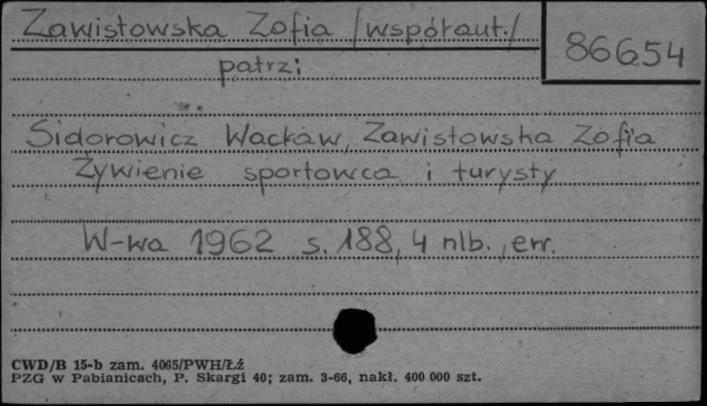 Zawistowska Zofia /współaut./
86654
patrz:
Sidorowicz Wacław, Zawistowska Zofia
Żywienie sportowca i turysty
W-wa 1962 s. 188, 4 nlb., err.
CWD/B 15-b zam. 4065/PWH/Łź
PZG w Pabianicach, P. Skargi 40; zam. 3-66, nakł. 400 000 szt.